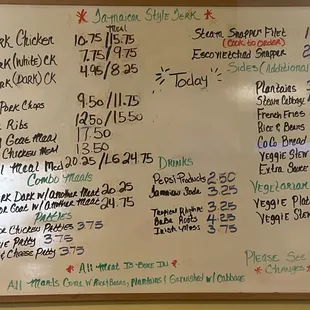 Jamaican Style Jerk
MEAL
Chicken 10.75/15.75
(WHITE) CK 7.75/9.75
(DARK) CK 4.95/8.25
Pork Chops 9.50/11.75
Ribs 12.50/15.50
Goat Meal 17.50
Chicken Meal 13.50
Meal Med 20.25/LG 24.75
Combo Meals
Dark w/Another Meat 20.25
or Goat w/Another Meat 24.75
Patties
Chicken Patties 3.75
Patty 3.75
& Cheese Patty 3.75
* All Meat Is Bone In *
All Meals Come w/Rice & Beans, Plantains & Garnished w/Cabbage
Today
DRINKS
Pepsi Products 2.50
Jamaican Soda 3.25
Tropical Rhythms 3.25
Baba Roots 4.25
Irish Moss 3.75
Steam Snapper Filet
(Cook to order)
Escoveitched Snapper
Sides (Additional
Plantains
Steam Cabbage
French Fries
Rice & Beans
CoCo Bread
Veggie Stew
Extra Sauce
Vegetarian
Veggie Plat
Veggie Stew
Please See
* Changes *